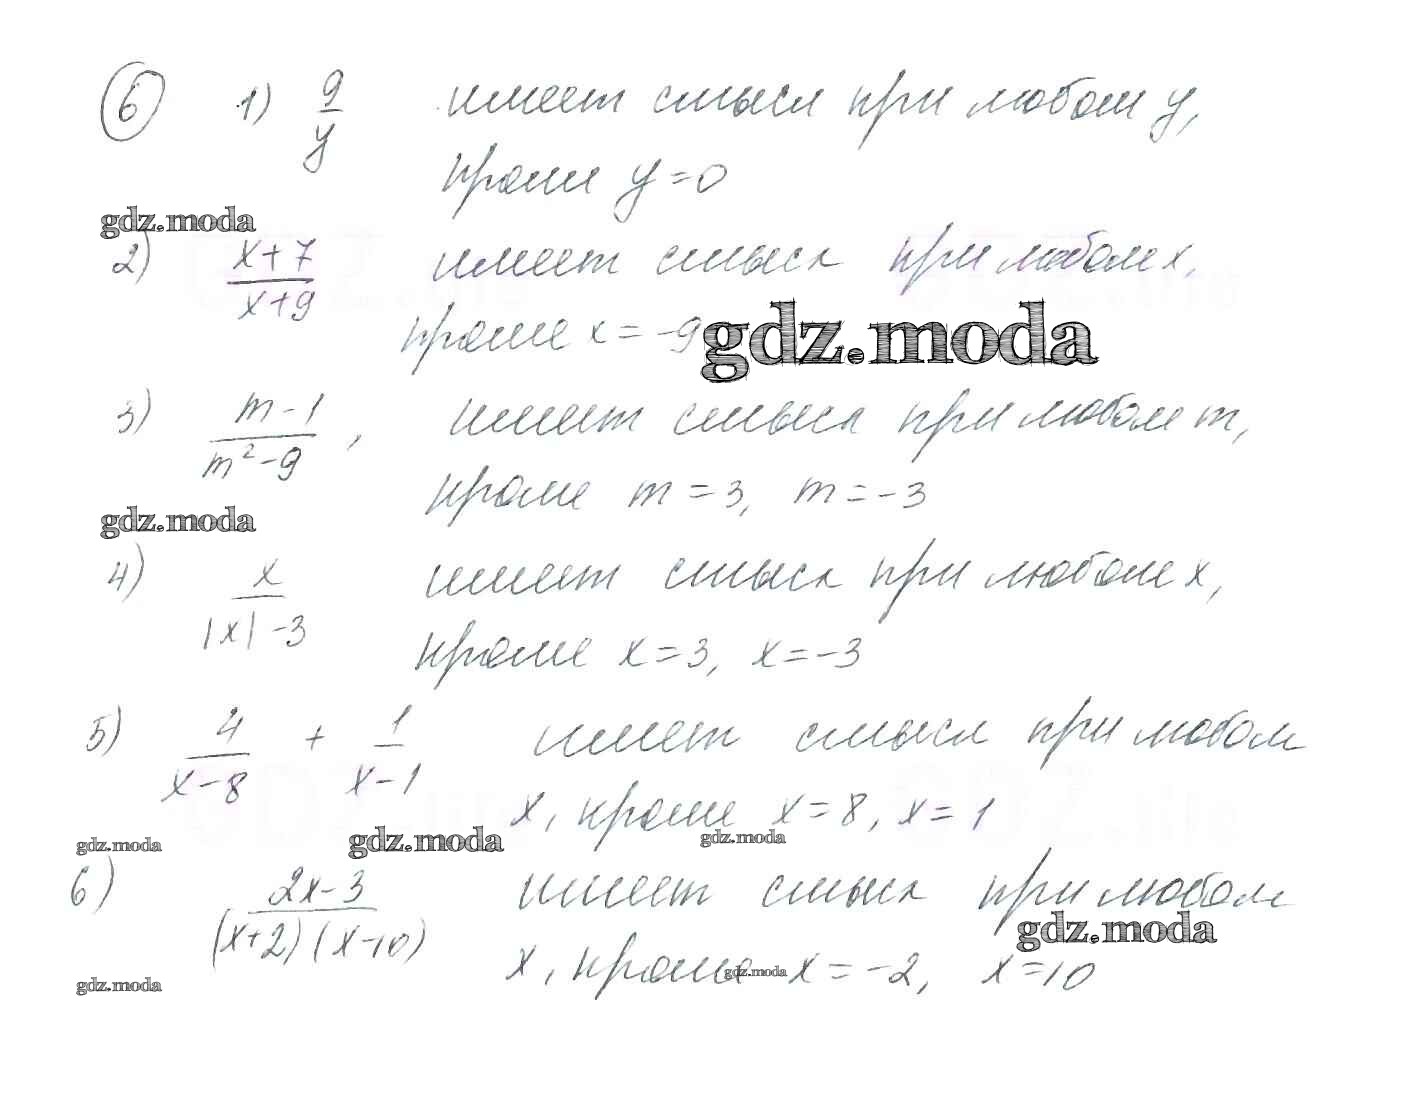 6 1) 9/y имеет смысл при любом y,
кроме y = 0
gdz.moda
2) x+7/x+9 имеет смысл при любом x,
кроме x = -9
gdz.moda
3) m-1/m²-9, имеет смысл при любом m,
кроме m = 3, m = -3
gdz.moda
4) x/|x|-3 имеет смысл при любом x,
кроме x = 3, x = -3
5) 4/x-8 + 1/x-1 имеет смысл при любом
x, кроме x = 8, x = 1
gdz.moda gdz.moda gdz.moda
6) 2x-3/(x+2)(x-10) имеет смысл при любом
gdz.moda
x, кроме x = -2, x = 10
gdz.moda gdz.moda